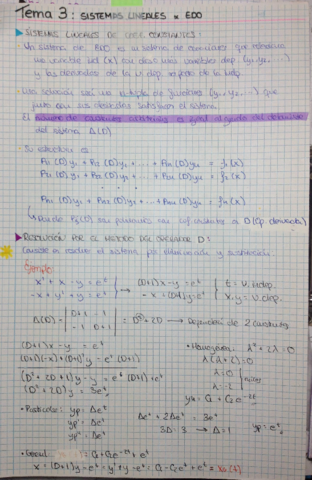 Tema 3: SISTEMAS LINEALES EDO
SISTEMAS LINEALES DE COEF. CONSTANTES:
Un sistema de EDO es un sistema de ecuaciones que relaciona
una variable ind (x) con dos o más variables dep. (y₁, y₂, ...)
y las derivadas de la v. dep. respecto de la v. indep.
Una solución será una n-upla de funciones (y₁, y₂, ...) que
junto con sus derivadas satisfacen el sistema.
El número de constantes arbitrarias es igual al grado del determinante
del sistema Δ(D)
Su estructura es
P₁₁(D)y₁ + P₁₂(D)y₂ + ... + P₁ₙ(D)yₙ = f₁(x)
P₂₁(D)y₁ + P₂₂(D)y₂ + ... + P₂ₙ(D)yₙ = f₂(x)
. . .
Pₙ₁(D)y₁ + Pₙ₂(D)y₂ + ... + Pₙₙ(D)yₙ = fₙ(x)
coef. constantes D (Op. derivada)
RESOLUCIÓN POR EL MÉTODO DEL OPERADOR D:
Consiste en resolver el sistema por eliminación y sustitución.
Ejemplo:
x' + x - y = eᵗ
-x + y' + y = eᵗ
(D+1)x - y = eᵗ
-x + (D+1)y = eᵗ
t = v. indep.
x, y = v. dep.
Δ(D) = | D+1 -1 | = D² + 2D → Dependen de 2 constantes
| -1 D+1 |
(D+1)x - y = eᵗ
(D+1)(-x) + (D+1)²y = eᵗ (D+1)
(D² + 2D + 1)y - y = eᵗ (D+1) + eᵗ
(D² + 2D)y = 3eᵗ
• Homogénea: λ² + 2λ = 0
λ(λ+2) = 0
λ = 0
λ = -2
yₕ = C₁ + C₂e⁻²ᵗ
• Particular: yp = Aeᵗ
yp' = Aeᵗ
yp'' = Aeᵗ
Aeᵗ + 2Aeᵗ = 3eᵗ
3A = 3 → A = 1
yp = eᵗ
• General: = C₁ + C₂e⁻²ᵗ + eᵗ
x = (D+1)y - eᵗ = y' + y - eᵗ = C₁ - C₂e⁻²ᵗ + eᵗ =